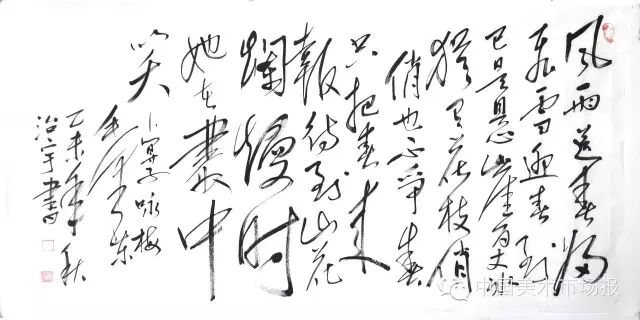 风雨送春归
飛雪迎春到
已是悬崖百丈冰
犹有花枝俏
俏也不争春
只把春来
報待到山花
爛熳时
她在叢中
笑
卜算子咏梅
毛泽东
乙未年秋
治宇書
中国美术市场报